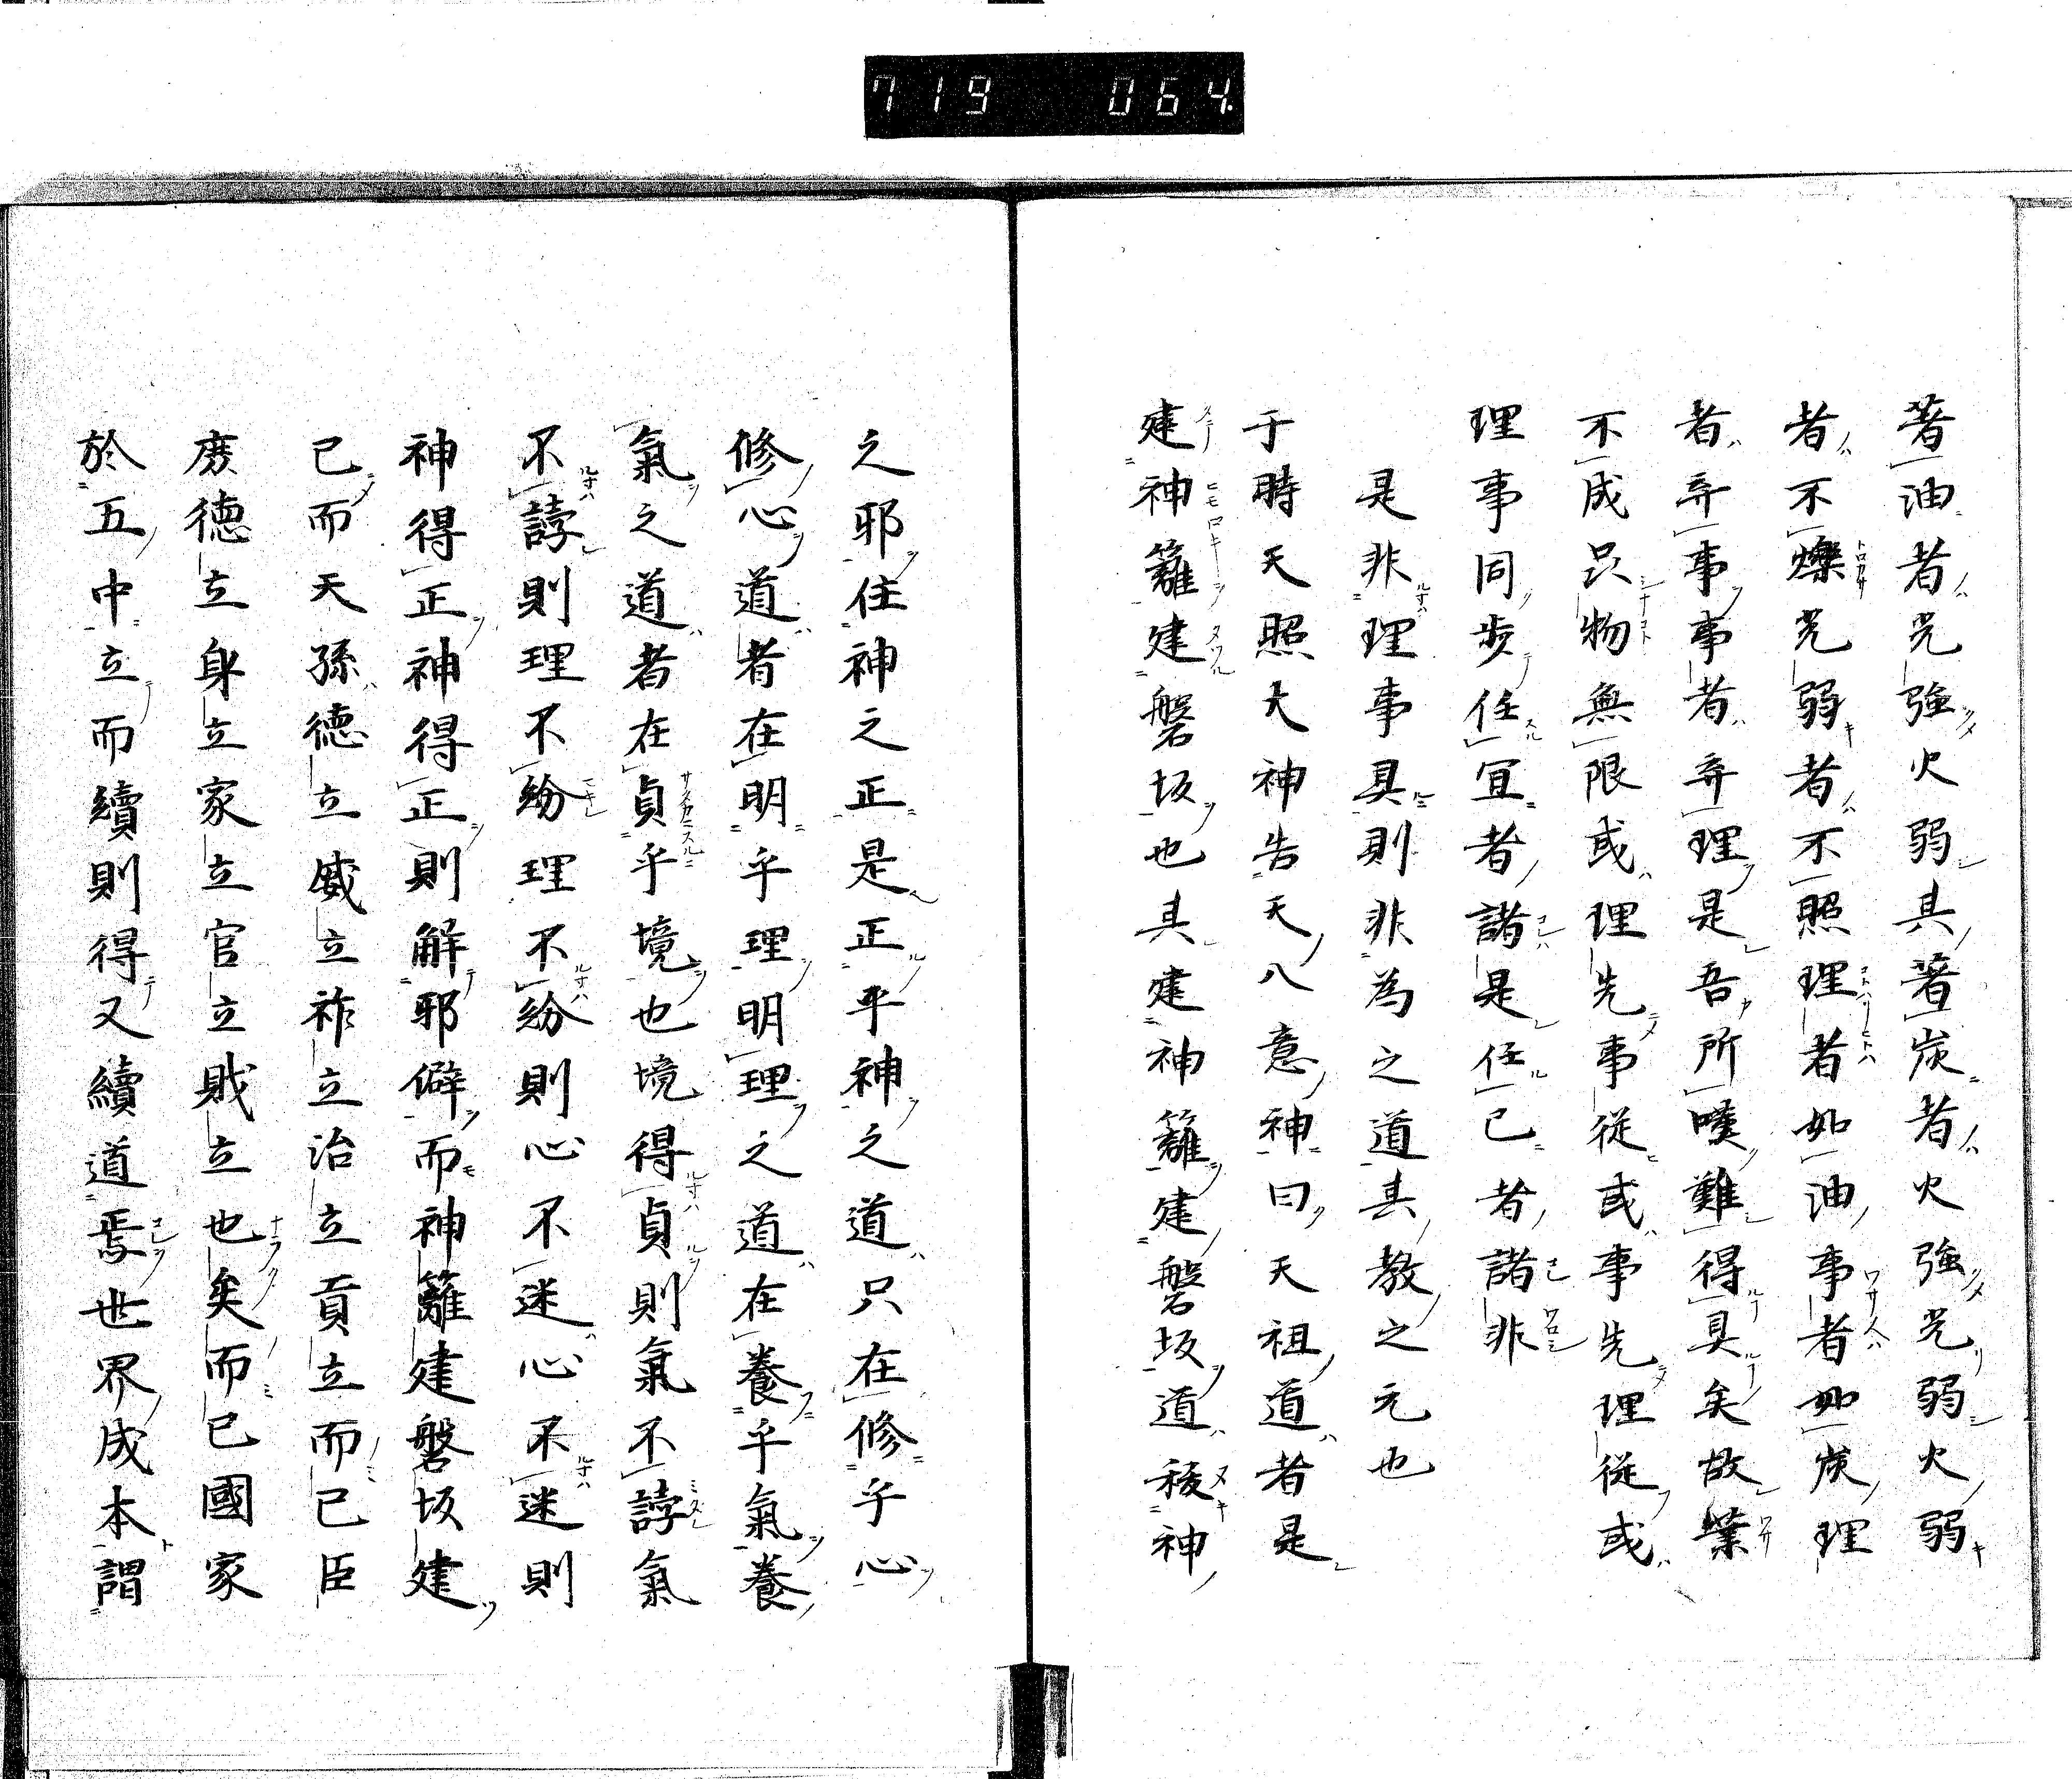 719 064
著油者光強火弱其著炭者火強光弱火弱
者不爍光弱者不照理者如油事者如炭理
者弃事事者弃理是吾所嘆難得具矣故業
不成只物無限或理先事從或事先理從或
理事同步任宜者諸是任己者諸非
是非理事具則非為之道其教之元也
于時天照大神告天八意神曰天祖道者是
建神籬建磐坂也其建神籬建磐坂道稜神
之邪住神之正是正平神之道只在修乎心
修心道者在明乎理明理之道在養乎氣養
氣之道者在貞乎境也境得貞則氣不誖氣
不誖則理不紛理不紛則心不迷心不迷則
神得正神得正則解邪僻而神籬建磐坂建
已而天孫德立威立祚立治立貢立而已臣
庶德立身立家立官立賊立也矣而已國家
於五中立而續則得又續道焉世界成本謂